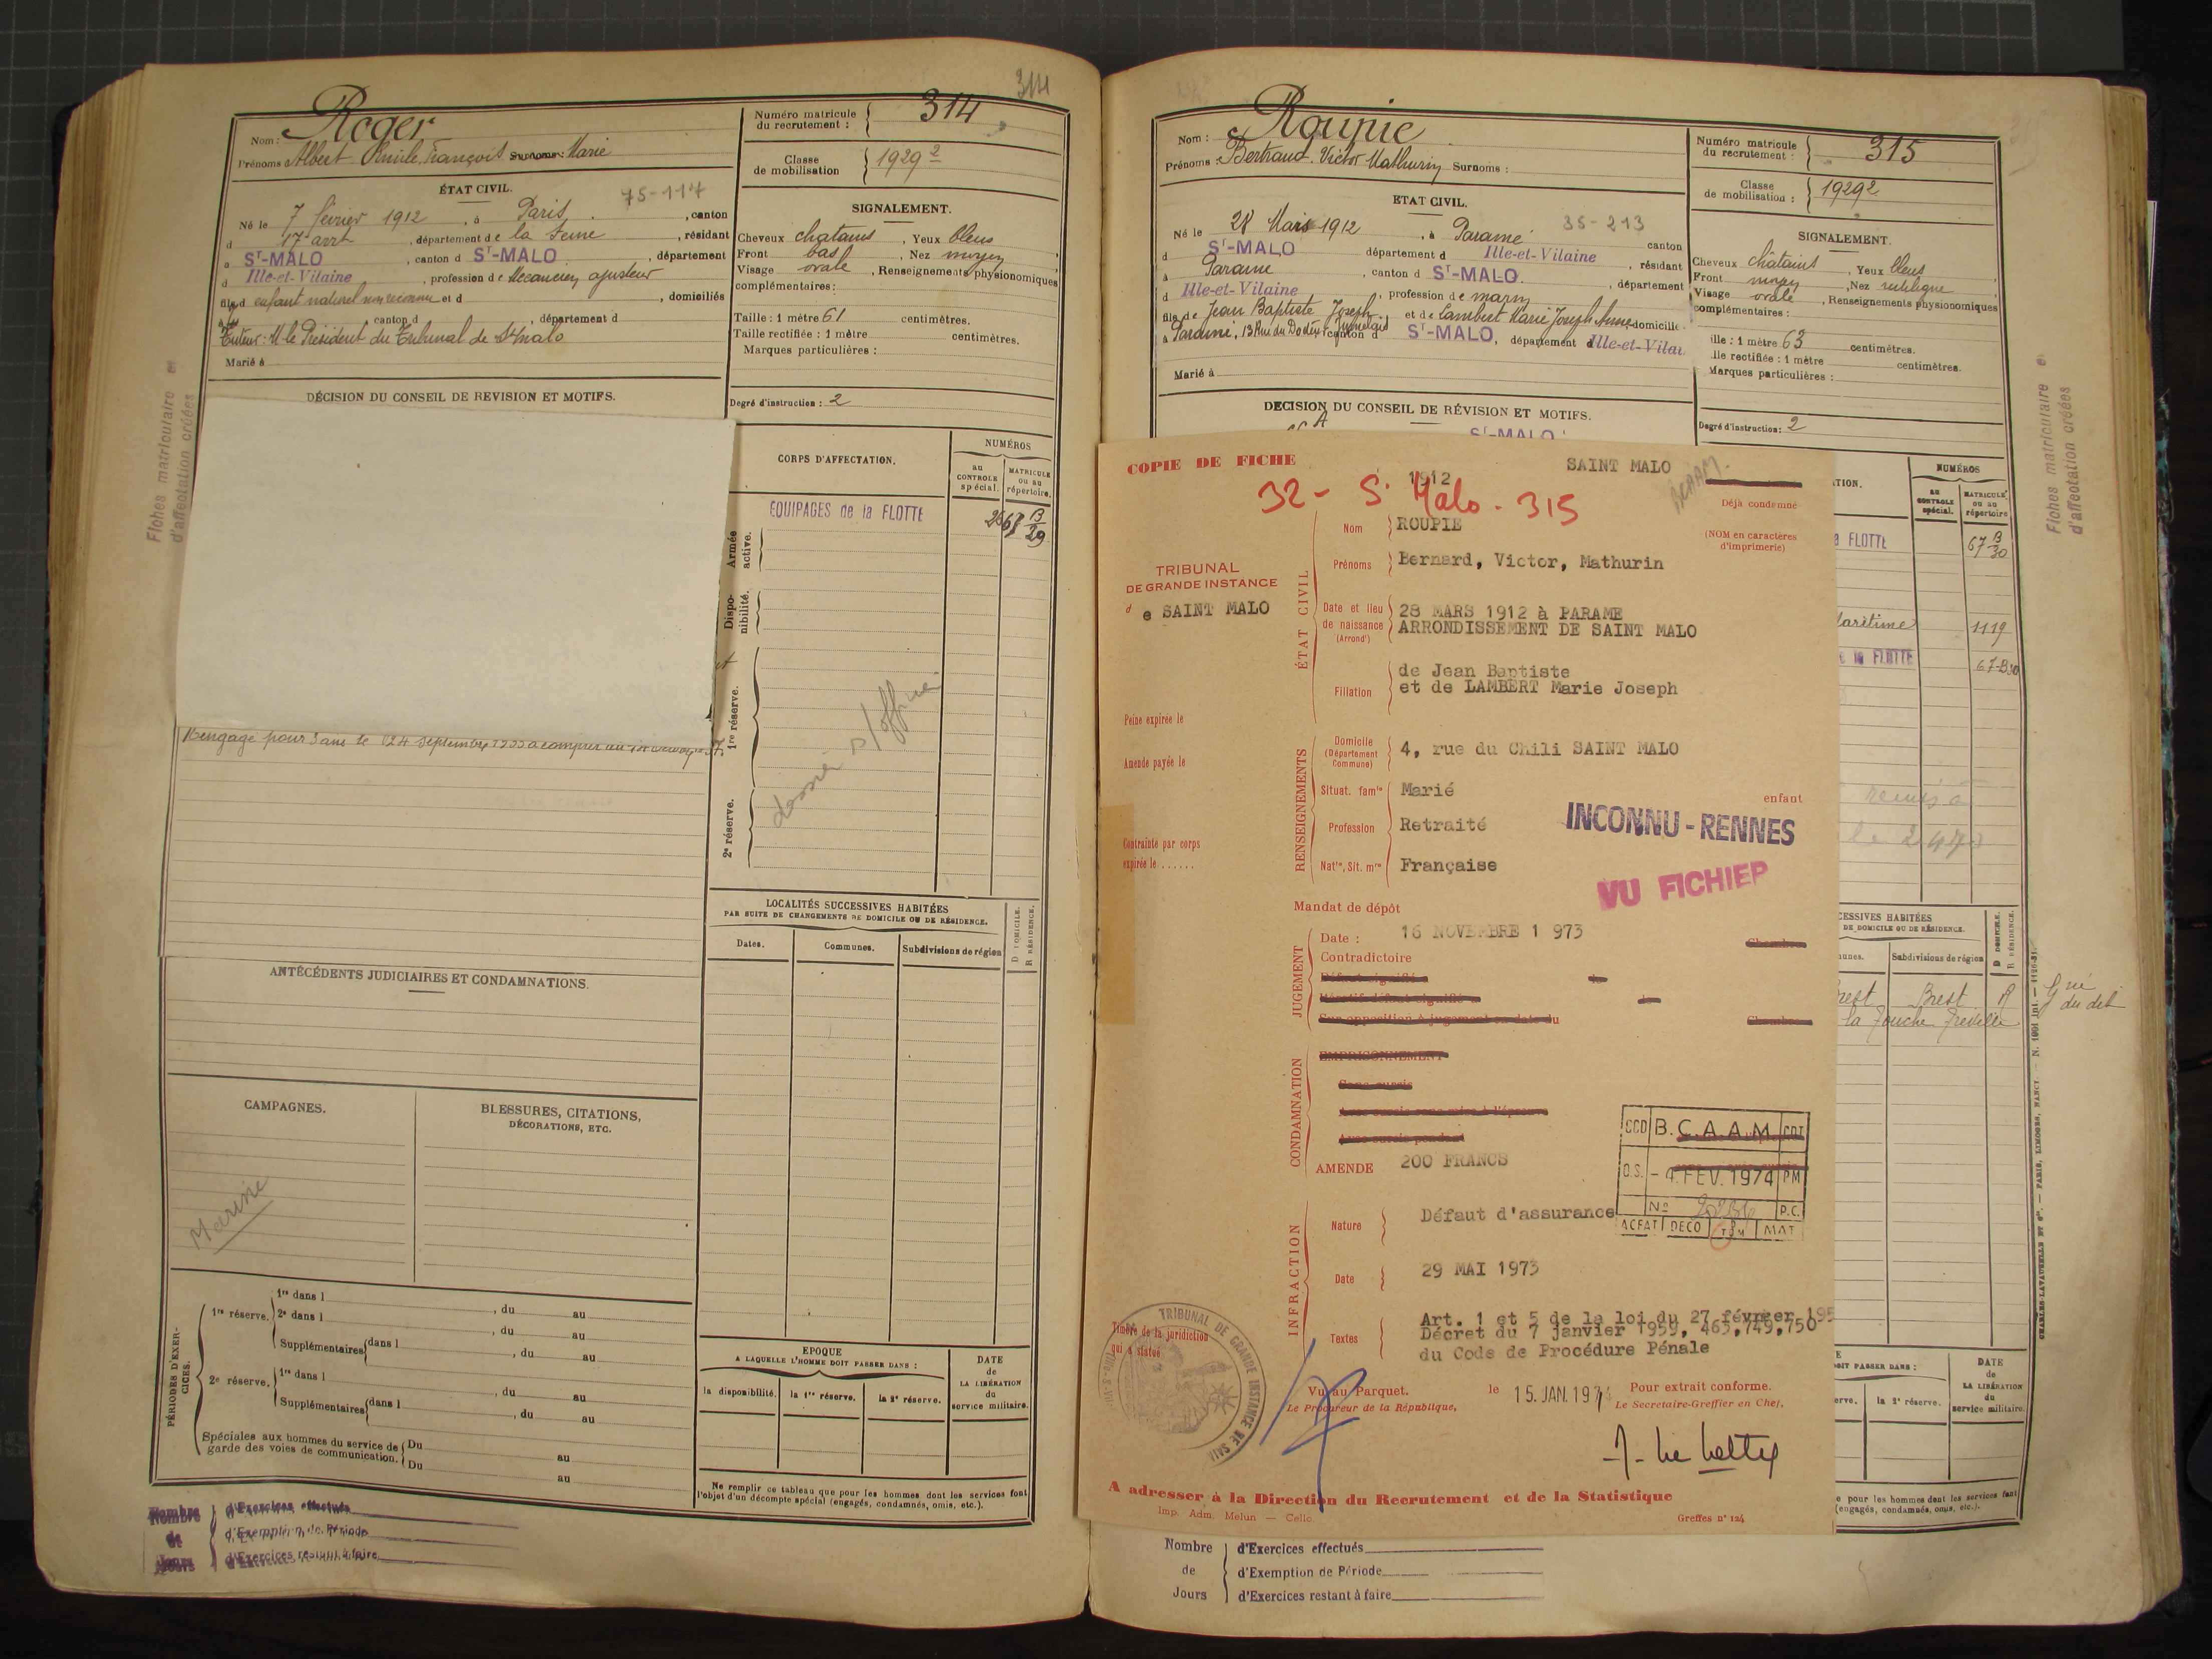 314
Nom : Roger
Prénoms Albert Emile, François Surnoms: Marie
Numéro matricule du recrutement : 314
Classe de mobilisation 1929 2
ÉTAT CIVIL.
75-117
Né le 7 février 1912, à Paris, canton
d 17e arrt, département de la Seine, résidant
à St-MALO, canton d St-MALO, département
d Ille-et-Vilaine, profession de Mécanicien ajusteur
fils d enfant naturel non reconnu et d , domiciliés
à , canton d , département d
Tuteur : M. le Président du Tribunal de St Malo
Marié à
SIGNALEMENT.
Cheveux chatains, Yeux bleus
Front bas, Nez moyen
Visage ovale, Renseignements physionomiques
complémentaires :
Taille : 1 mètre 61 centimètres.
Taille rectifiée : 1 mètre centimètres.
Marques particulières :
Degré d'instruction : 2
DÉCISION DU CONSEIL DE REVISION ET MOTIFS.
Fiches matriculaire et
d'affectation créées
Rengagé pour 3 ans le 24 septembre
CORPS D'AFFECTATION.
NUMÉROS
au CONTROLE spécial.
MATRICULE ou au répertoire.
Armée active.
EQUIPAGES de la FLOTTE
Dispo-nibilité.
1re réserve.
2e réserve.
dossier s/officier
LOCALITÉS SUCCESSIVES HABITÉES
PAR SUITE DE CHANGEMENTS DE DOMICILE OU DE RÉSIDENCE.
Dates.
Communes.
Subdivisions de région
D DOMICILE.
R RÉSIDENCE.
ANTÉCÉDENTS JUDICIAIRES ET CONDAMNATIONS.
CAMPAGNES.
BLESSURES, CITATIONS,
DÉCORATIONS, ETC.
Marine
PÉRIODES D'EXER-CICES.
1re réserve.
1re dans l , du au
2e dans l , du au
Supplémentaires dans l , du au
2e réserve.
1re dans l , du au
Supplémentaires dans l , du au
Spéciales aux hommes du service de garde des voies de communication.
Du au
Du au
EPOQUE
A LAQUELLE L'HOMME DOIT PASSER DANS :
la disponibilité.
la 1re réserve.
la 2e réserve.
DATE
de
LA LIBÉRATION
du
service militaire.
Ne remplir ce tableau que pour les hommes dont les services font
l'objet d'un décompte spécial (engagés, condamnés, omis, etc.).
Nombre de Jours
d'Exercices effectués
d'Exemption de Période
d'Exercices restant à faire
Nom : Roupie
Prénoms : Bertrand, Victor Mathurin Surnoms :
Numéro matricule du recrutement : 315
Classe de mobilisation : 1929 2
ETAT CIVIL.
35-213
Né le 28 Mars 1912, à Paramé canton
d St-MALO département d Ille-et-Vilaine, résidant
à Paramé, canton d St-MALO, département
d Ille-et-Vilaine, profession de marin
fils de Jean Baptiste Joseph et de Lambert Marie Joseph Anne domiciliés
à Paramé, 13 Rue du canton d St-MALO, département d Ille-et-Vilai
Marié à
SIGNALEMENT.
Cheveux châtains, Yeux bleus
Front moyen, Nez rectiligne
Visage ovale, Renseignements physionomiques
complémentaires :
ille : 1 mètre 63 centimètres.
lle rectifiée : 1 mètre centimètres.
Marques particulières :
Degré d'instruction : 2
DECISION DU CONSEIL DE RÉVISION ET MOTIFS.
St-MALO
COPIE DE FICHE
1912
SAINT MALO
BCAAM.
32 - St Malo - 315
Déjà condamné
(NOM en caractères
d'imprimerie)
TRIBUNAL
DE GRANDE INSTANCE
de SAINT MALO
ÉTAT CIVIL
Nom ROUPIE
Prénoms Bernard, Victor, Mathurin
Date et lieu de naissance (Arrondt)
28 MARS 1912 à PARAME
ARRONDISSEMENT DE SAINT MALO
Filiation
de Jean Baptiste
et de LAMBERT Marie Joseph
Peine expirée le
Amende payée le
Contrainte par corps
expirée le ......
RENSEIGNEMENTS
Domicile (Département Commune) 4, rue du Chili SAINT MALO
Situat. famle Marié enfant
Profession Retraité
Natté, Sit. mre Française
INCONNU - RENNES
VU FICHIER
Mandat de dépôt
JUGEMENT
Date : 16 NOVEMBRE 1 973
Chambre
Contradictoire
Défaut signifié
Itératif défaut signifié
Sur opposition à jugement en date du
Chambre
CONDAMNATION
EMPRISONNEMENT
Sans sursis
Avec sursis sous mise à l'épreuve
Avec sursis pendant
AMENDE 200 FRANCS
CCD B.C.A.A.M CDT
O.S. - 4 FEV. 1974 PM
No P.C.
ACFAT DECO MAT
INFRACTION
Nature Défaut d'assurance
Date 29 MAI 1973
Textes
Art. 1 et 5 de la loi du 27 février 195
Décret du 7 janvier 1959, 463,749,750
du Code de Procédure Pénale
Timbre de la juridiction
qui a statué
TRIBUNAL DE GRANDE INSTANCE DE SAI
Vu au Parquet.
Le Procureur de la République,
le 15. JAN. 197
Pour extrait conforme.
Le Secretaire-Greffier en Chef,
A adresser à la Direction du Recrutement et de la Statistique
Imp. Adm. Melun — Cello.
Greffes n° 124
TION.
NUMÉROS
au CONTROLE spécial.
MATRICULE ou au répertoire
a FLOTTE
67 B 30
Maritime 1119
e la FLOTTE 67-B30
remis à
CESSIVES HABITÉES
DE DOMICILE OU DE RÉSIDENCE.
unes.
Subdivisions de région
D DOMICILE.
R RÉSIDENCE.
rest Brest R
la Touche Tréville
E
OIT PASSER DANS :
erve.
la 2e réserve.
DATE
de
LA LIBÉRATION
du
service militaire.
e pour les hommes dont les services font
(engagés, condamnés, omis, etc.).
Fiches matriculaire et
d'affectation créées
CHARLES-LAVAUZELLE ET Cie. — PARIS, LIMOGES, NANCY.
Nombre de Jours
d'Exercices effectués
d'Exemption de Période
d'Exercices restant à faire